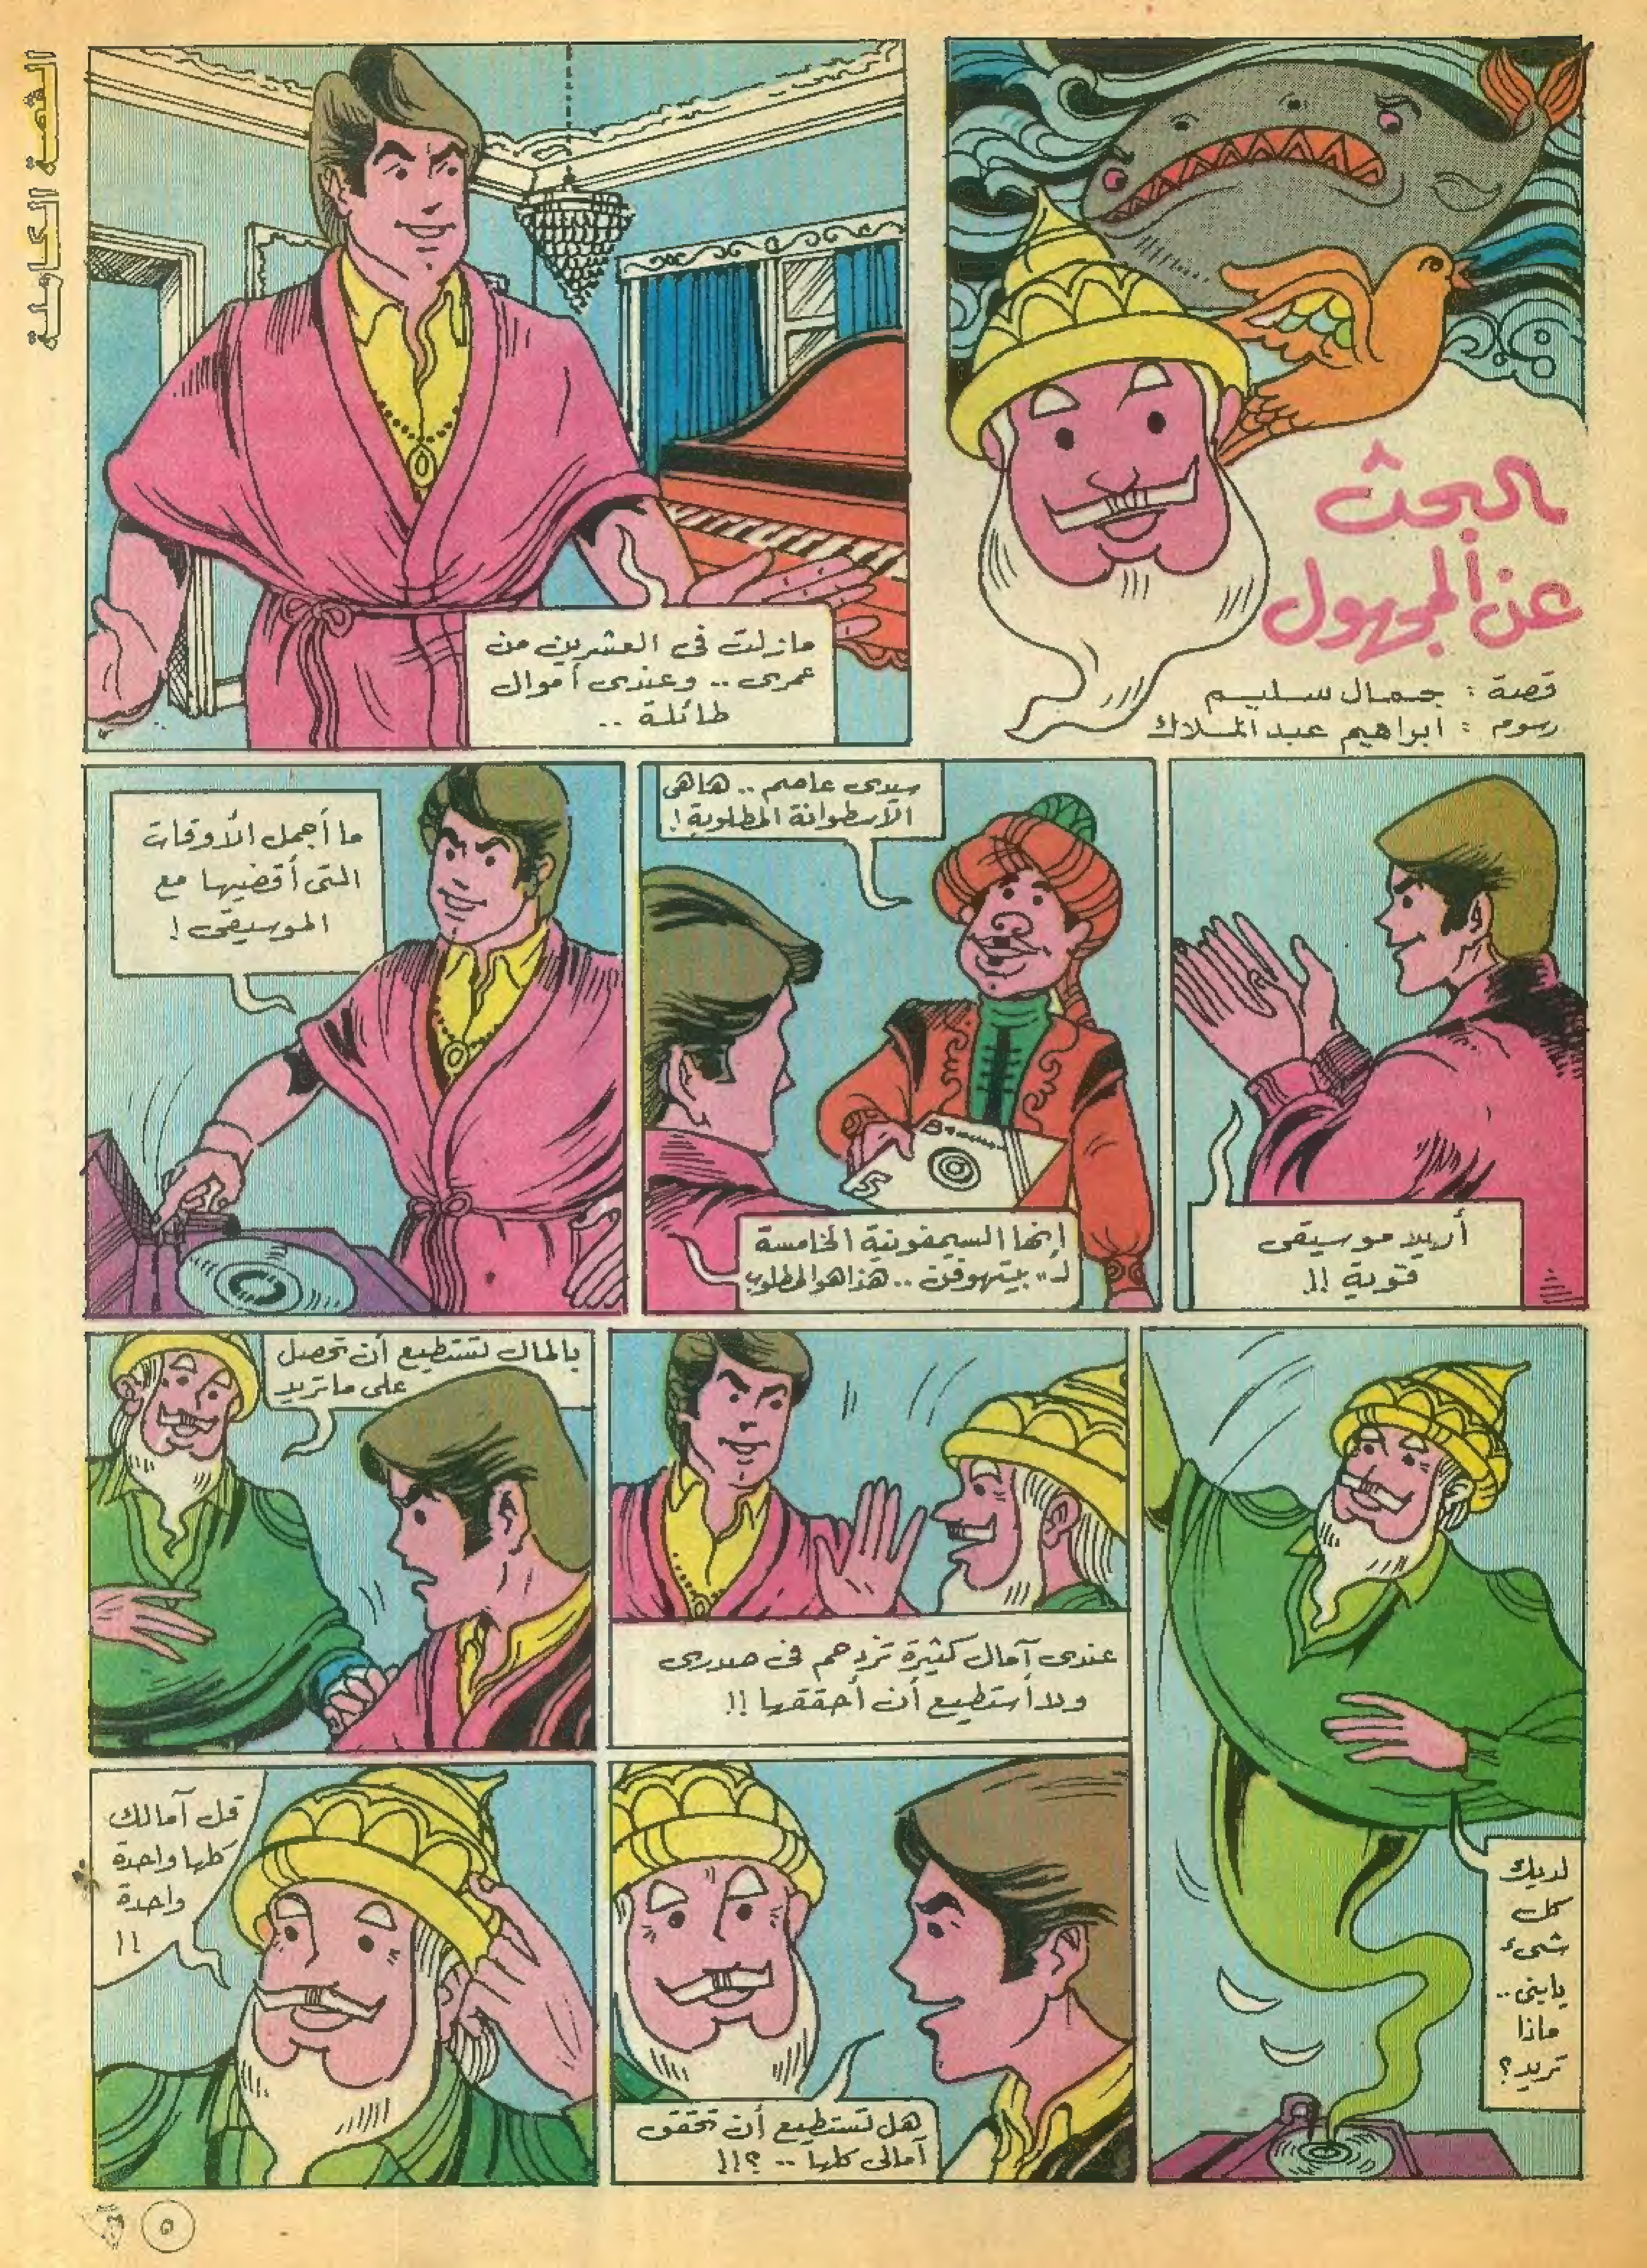 القصة الكاملة
البحث
عن المجهول
قصة : جمال سليم
رسوم : ابراهيم عبد الملاك
مازلت فى العشرين من
عمرى .. وعندى أموال
طائلة ..
أريد موسيقى
قوية !!
سيدى عاصم .. هاهى
الاسطوانة المطلوبة !
B
5
إنها السيمفونية الخامسة
لـ " بيتهوفن .. هذا هو المطلوب
ما أجمل الأوقات
التى أقضيها مع
الموسيقى !
لديك
كل
شىء
يابنى ..
ماذا
تريد ؟
عندى آمال كثيرة تزدحم فى صدرى
ولا أستطيع أن أحققها !!
بالمال تستطيع أن تحصل
على ماتريد
هل تستطيع أن تحقق
آمالى كلها .. ؟!!
قل آمالك
كلها واحدة
واحدة
!!
٥